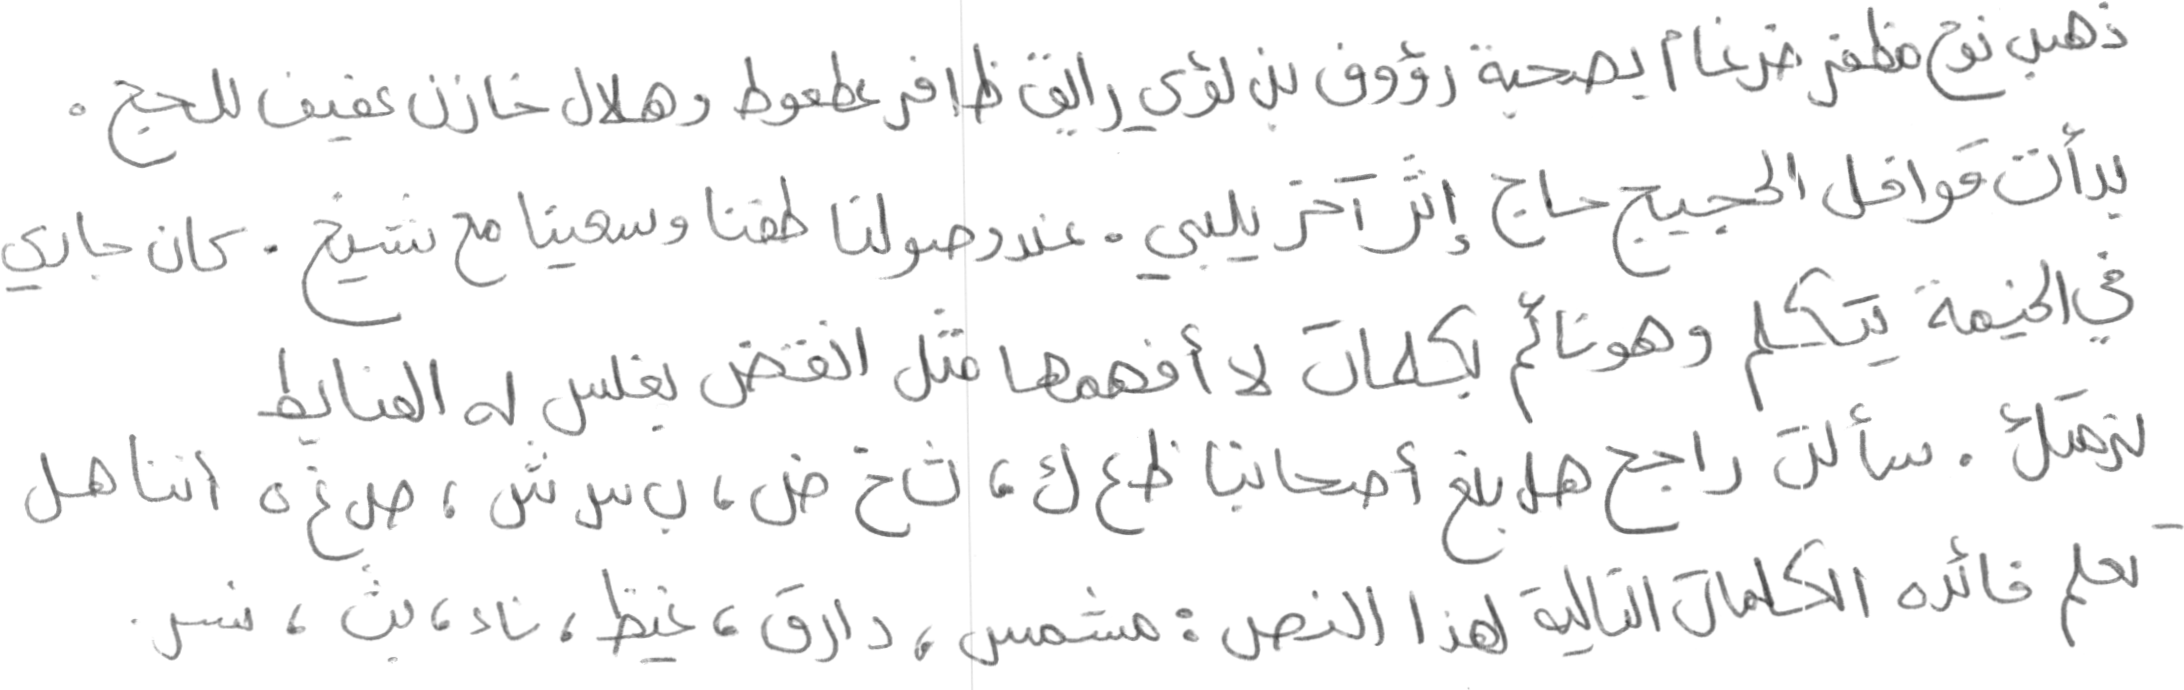 ذهب نوح مظفر ضرغام بصحبة رؤوف بن لؤي رائق ظافر عطعوط وهلال خازن عفيف للحج .
بدأت قوافل الحجيج حاج إثر آخر يلبي . عند وصولنا طفنا وسعينا مع شيخ . كان جاري
في الخيمة يتكلم وهو نائم بكلمات لا أفهمها مثل انقض يغلس له الضابط
لزمتك . سألت راجح هل بلغ أصحابنا ظ ع ك ، ث خ ض ، ب س ش ، ص غ ه أننا هل
نعلم فائده الكلمات التالية لهذا النص : مشمس ، دارق ، غيظ ، ناء ، بث ، نسر .